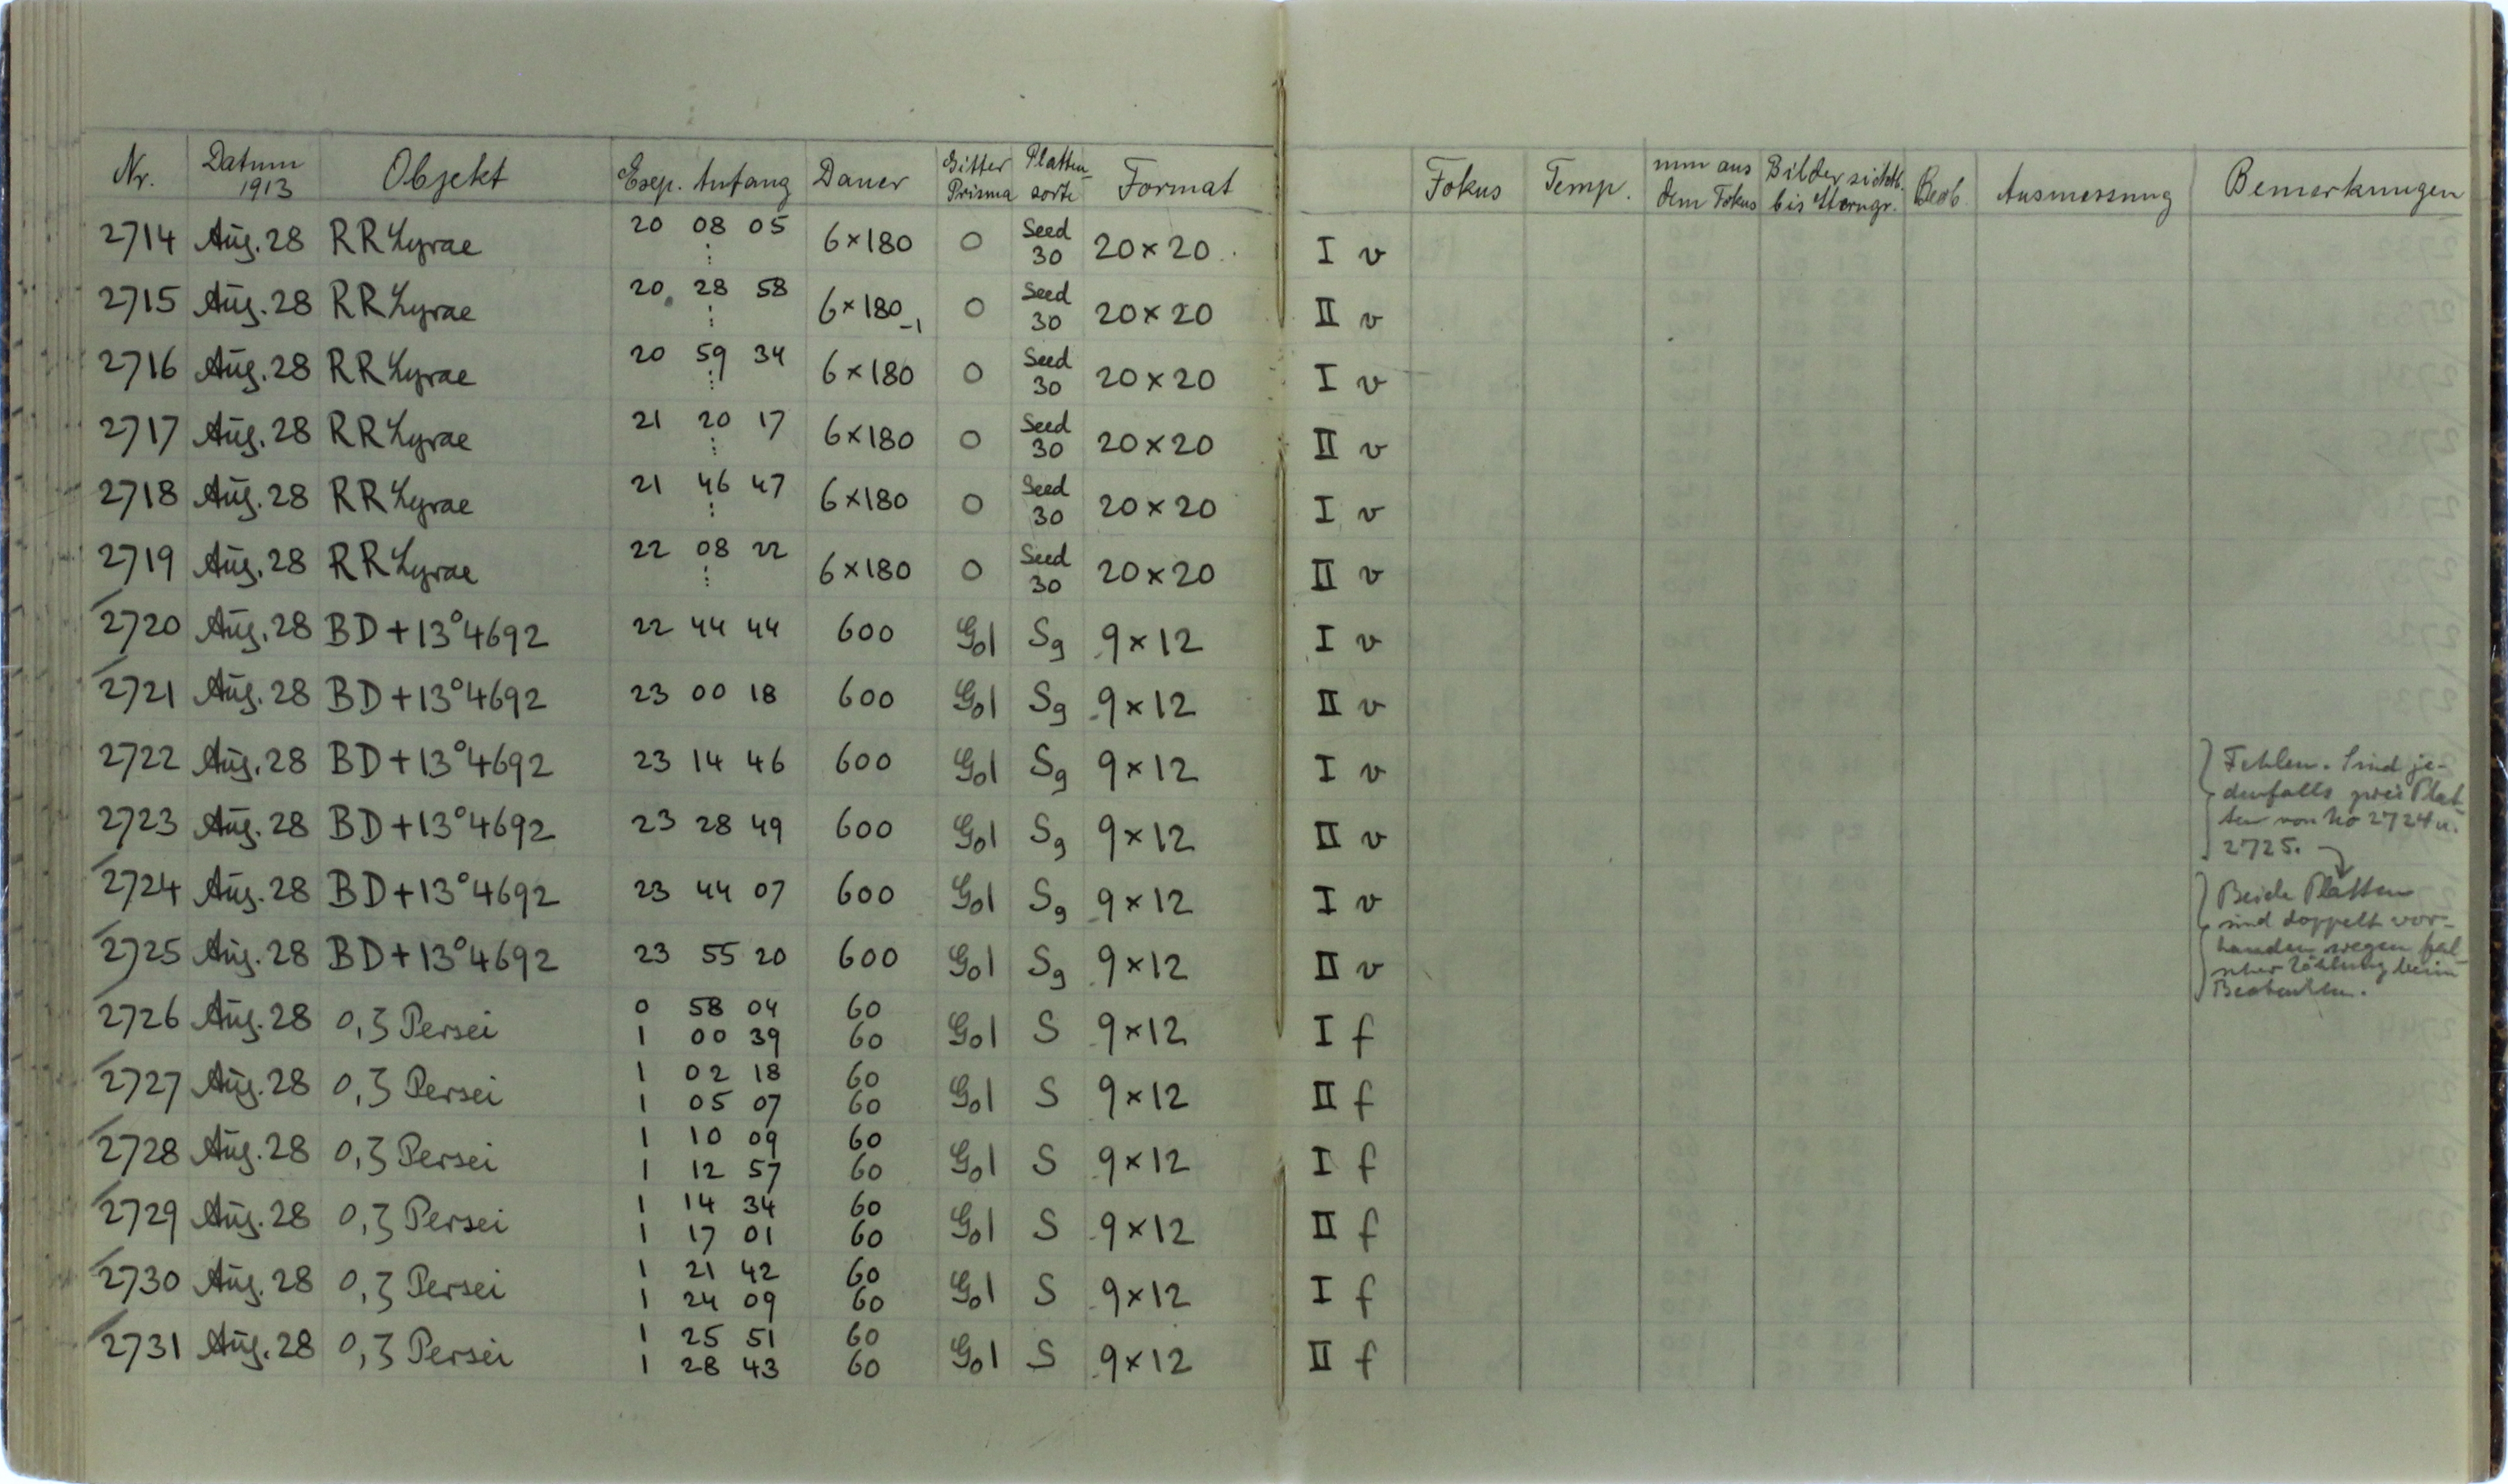 Nr. Datum 1913 Objekt Exp. Anfang Dauer Gitter Prisma Platten-sorte Format Fokus Temp. mm aus dem Fokus Bilder sichtb. bis Sterngr. Beob. Ausmessung Bemerkungen
2714 Aug. 28 RR Lyrae 20 08 05 ⋮ 6×180 0 Seed 30 20×20 I v
2715 Aug. 28 RR Lyrae 20 28 58 ⋮ 6×180 -1 0 Seed 30 20×20 II v
2716 Aug. 28 RR Lyrae 20 59 34 ⋮ 6×180 0 Seed 30 20×20 I v
2717 Aug. 28 RR Lyrae 21 20 17 ⋮ 6×180 0 Seed 30 20×20 II v
2718 Aug. 28 RR Lyrae 21 46 47 ⋮ 6×180 0 Seed 30 20×20 I v
2719 Aug. 28 RR Lyrae 22 08 22 ⋮ 6×180 0 Seed 30 20×20 II v
2720 Aug. 28 BD+13°4692 22 44 44 600 G01 Sg 9×12 I v
2721 Aug. 28 BD+13°4692 23 00 18 600 G01 Sg 9×12 II v
2722 Aug. 28 BD+13°4692 23 14 46 600 G01 Sg 9×12 I v
2723 Aug. 28 BD+13°4692 23 28 49 600 G01 Sg 9×12 II v
Fehlen. Sind je-
denfalls zwei Plat-
ten von No 2724 u.
2725.
2724 Aug. 28 BD+13°4692 23 44 07 600 G01 Sg 9×12 I v
2725 Aug. 28 BD+13°4692 23 55 20 600 G01 Sg 9×12 II v
Beide Platten
sind doppelt vor-
handen wegen fal-
scher Zählung beim
Beobachten.
2726 Aug. 28 o,ζ Persei 0 58 04 60 G01 S 9×12 I f
1 00 39 60
2727 Aug. 28 o,ζ Persei 1 02 18 60 G01 S 9×12 II f
1 05 07 60
2728 Aug. 28 o,ζ Persei 1 10 09 60 G01 S 9×12 I f
1 12 57 60
2729 Aug. 28 o,ζ Persei 1 14 34 60 G01 S 9×12 II f
1 17 01 60
2730 Aug. 28 o,ζ Persei 1 21 42 60 G01 S 9×12 I f
1 24 09 60
2731 Aug. 28 o,ζ Persei 1 25 51 60 G01 S 9×12 II f
1 28 43 60